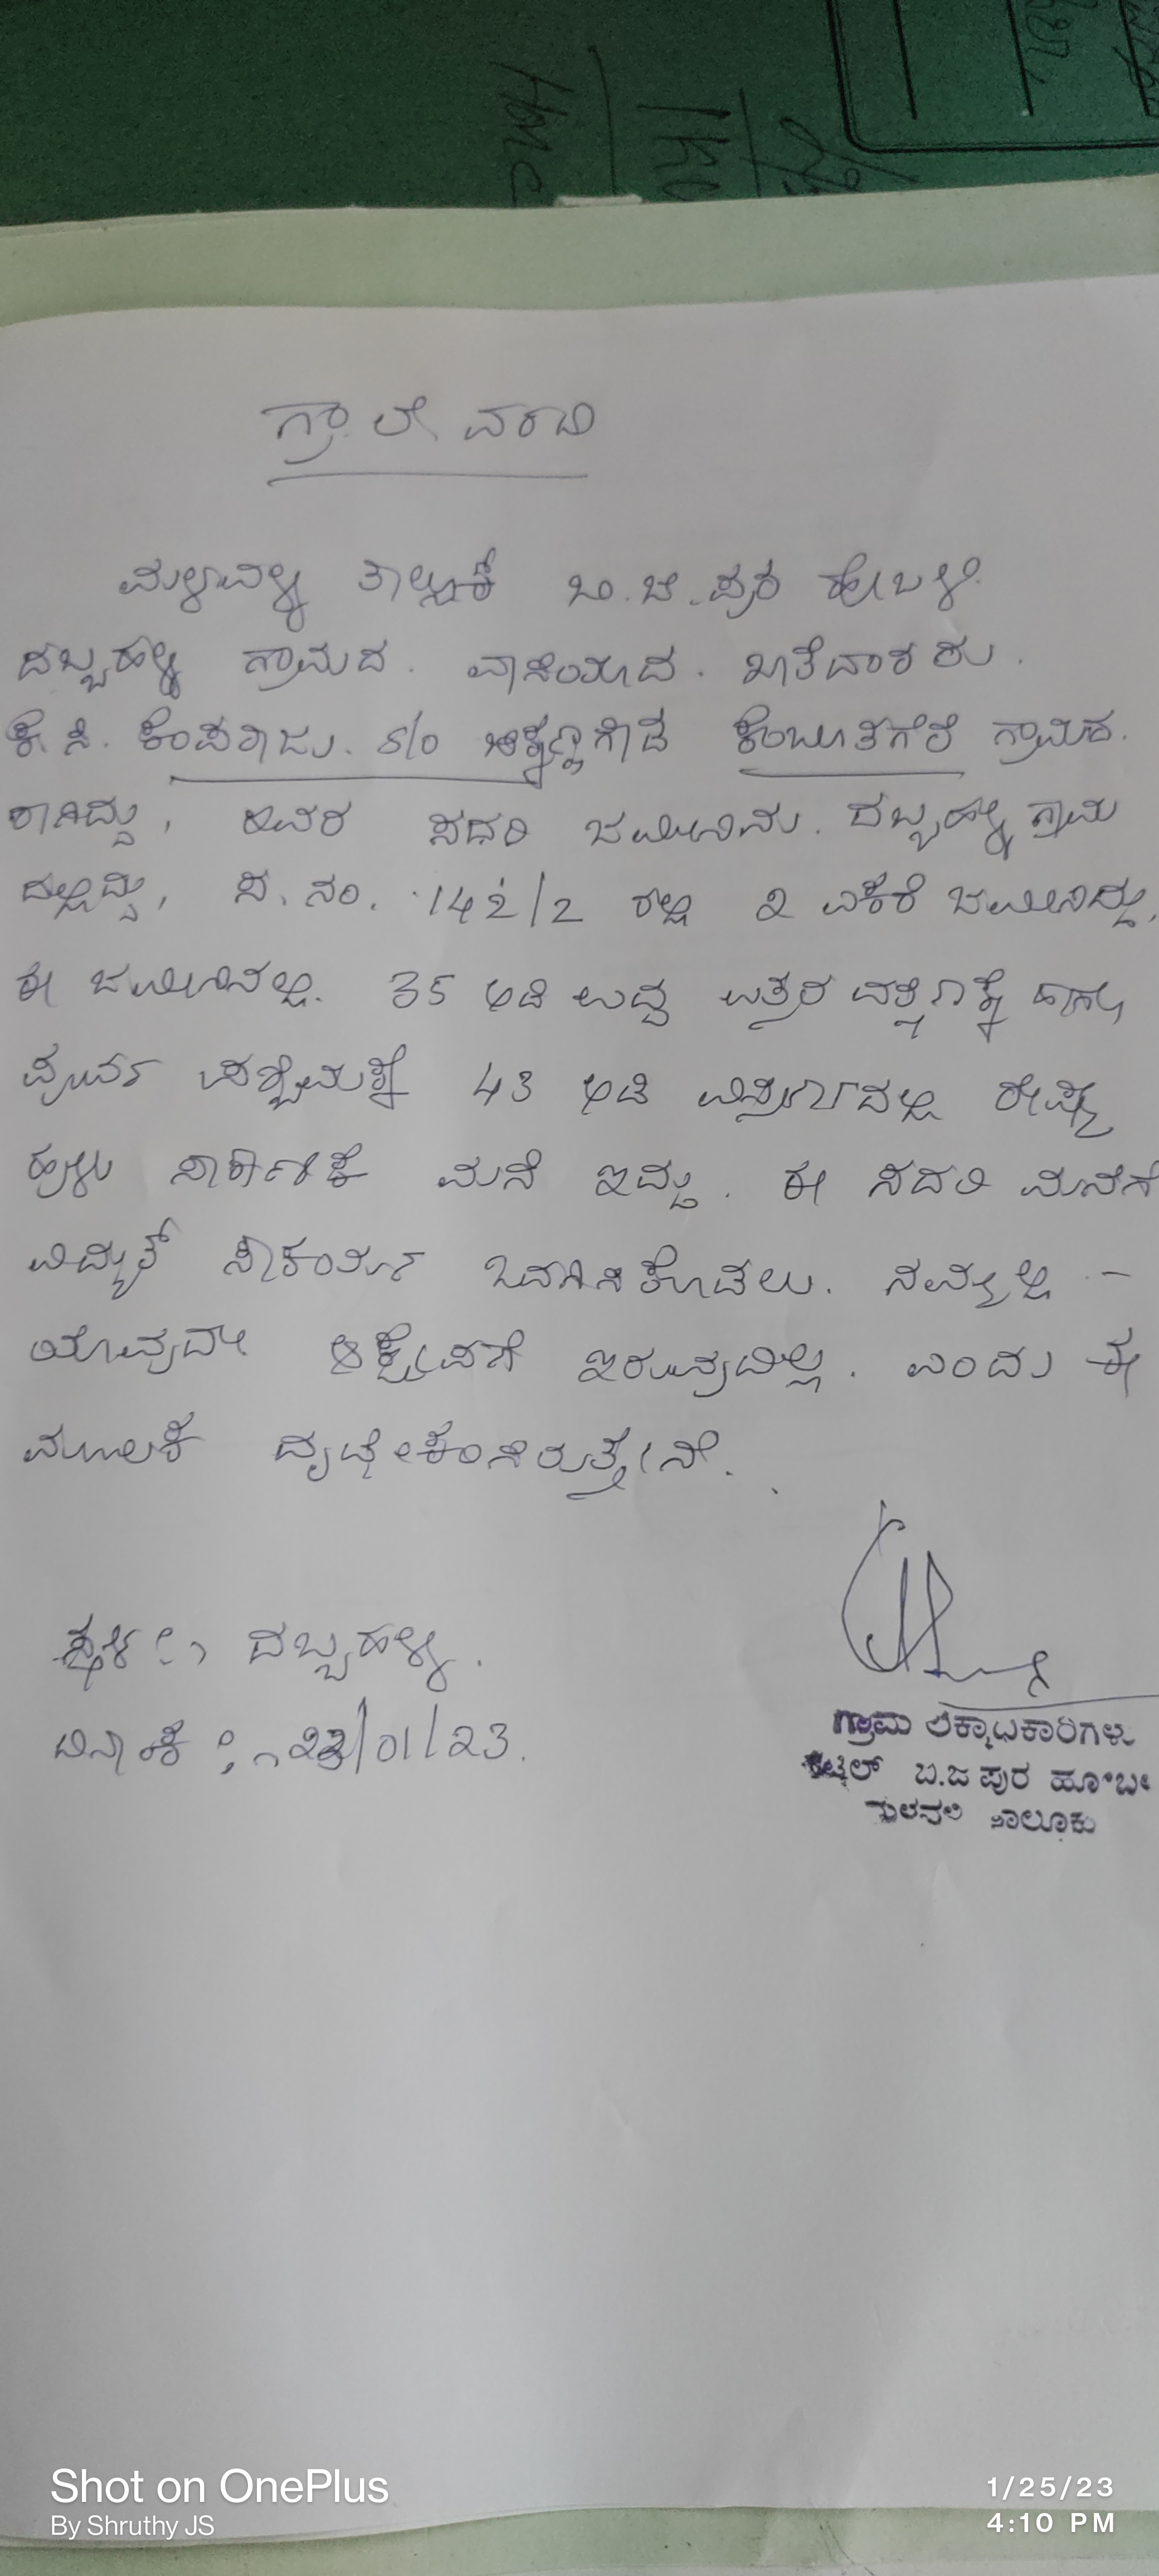 ಗ್ರಾ. ಲೇ. ವರದಿ
ಮಳವಳ್ಳಿ ತಾಲ್ಲೂಕ್ ಬಿ.ಜಿ.ಪುರ ಹೋಬಳಿ.
ದಬ್ಬಹಳ್ಳಿ ಗ್ರಾಮದ. ವಾಸಿಯಾದ. ಖಾತೆದಾರರು.
ಕೆ.ಸಿ. ಕೆಂಪರಾಜು. S/o ಗೌಡ ಕೆಂಬೂತಗೆರೆ ಗ್ರಾಮದ.
ರಾಗಿದ್ದು, ಇವರ ಸದರಿ ಜಮೀನಿನು. ದಬ್ಬಹಳ್ಳಿ ಗ್ರಾಮ
ದಲ್ಲಿದ್ದು, ಸ.ನಂ. 142/2 ರಲ್ಲಿ 2 ಎಕರೆ ಜಮೀನಿದ್ದು,
ಈ ಜಮೀನಿನಲ್ಲಿ. 35 ಅಡಿ ಉದ್ದ ಉತ್ತರ ದಕ್ಷಿಣಕ್ಕೆ ಹಾಗು
ಪೂರ್ವ ಪಶ್ಚಿಮಕ್ಕೆ 43 ಅಡಿ ವಿಸ್ತೀರ್ಣದಲ್ಲಿ ರೇಷ್ಮೆ
ಹುಳು ಸಾಕಾಣಿಕೆ ಮನೆ ಇದ್ದು. ಈ ಸದರಿ ಮನೆಗೆ
ವಿದ್ಯುತ್ ಸೌಕರ್ಯ ಒದಗಿಸಿಕೊಡಲು. ನಮ್ಮಲ್ಲಿ -
ಯಾವುದೇ ಆಕ್ಷೇಪಣೆ ಇರುವುದಿಲ್ಲ. ಎಂದು ಈ
ಮೂಲಕ ದೃಢೀಕರಿಸಿರುತ್ತೇನೆ.
ಸ್ಥಳ :, ದಬ್ಬಹಳ್ಳಿ.
ದಿನಾಂಕ :, 23/01/23.
ಗ್ರಾಮ ಲೆಕ್ಕಾಧಿಕಾರಿಗಳು
ಬಿ.ಜಿ ಪುರ ಹೋಬಳಿ
ಮಳವಳ್ಳಿ ತಾಲೂಕು
Shot on OnePlus
By Shruthy JS
1/25/23
4:10 PM